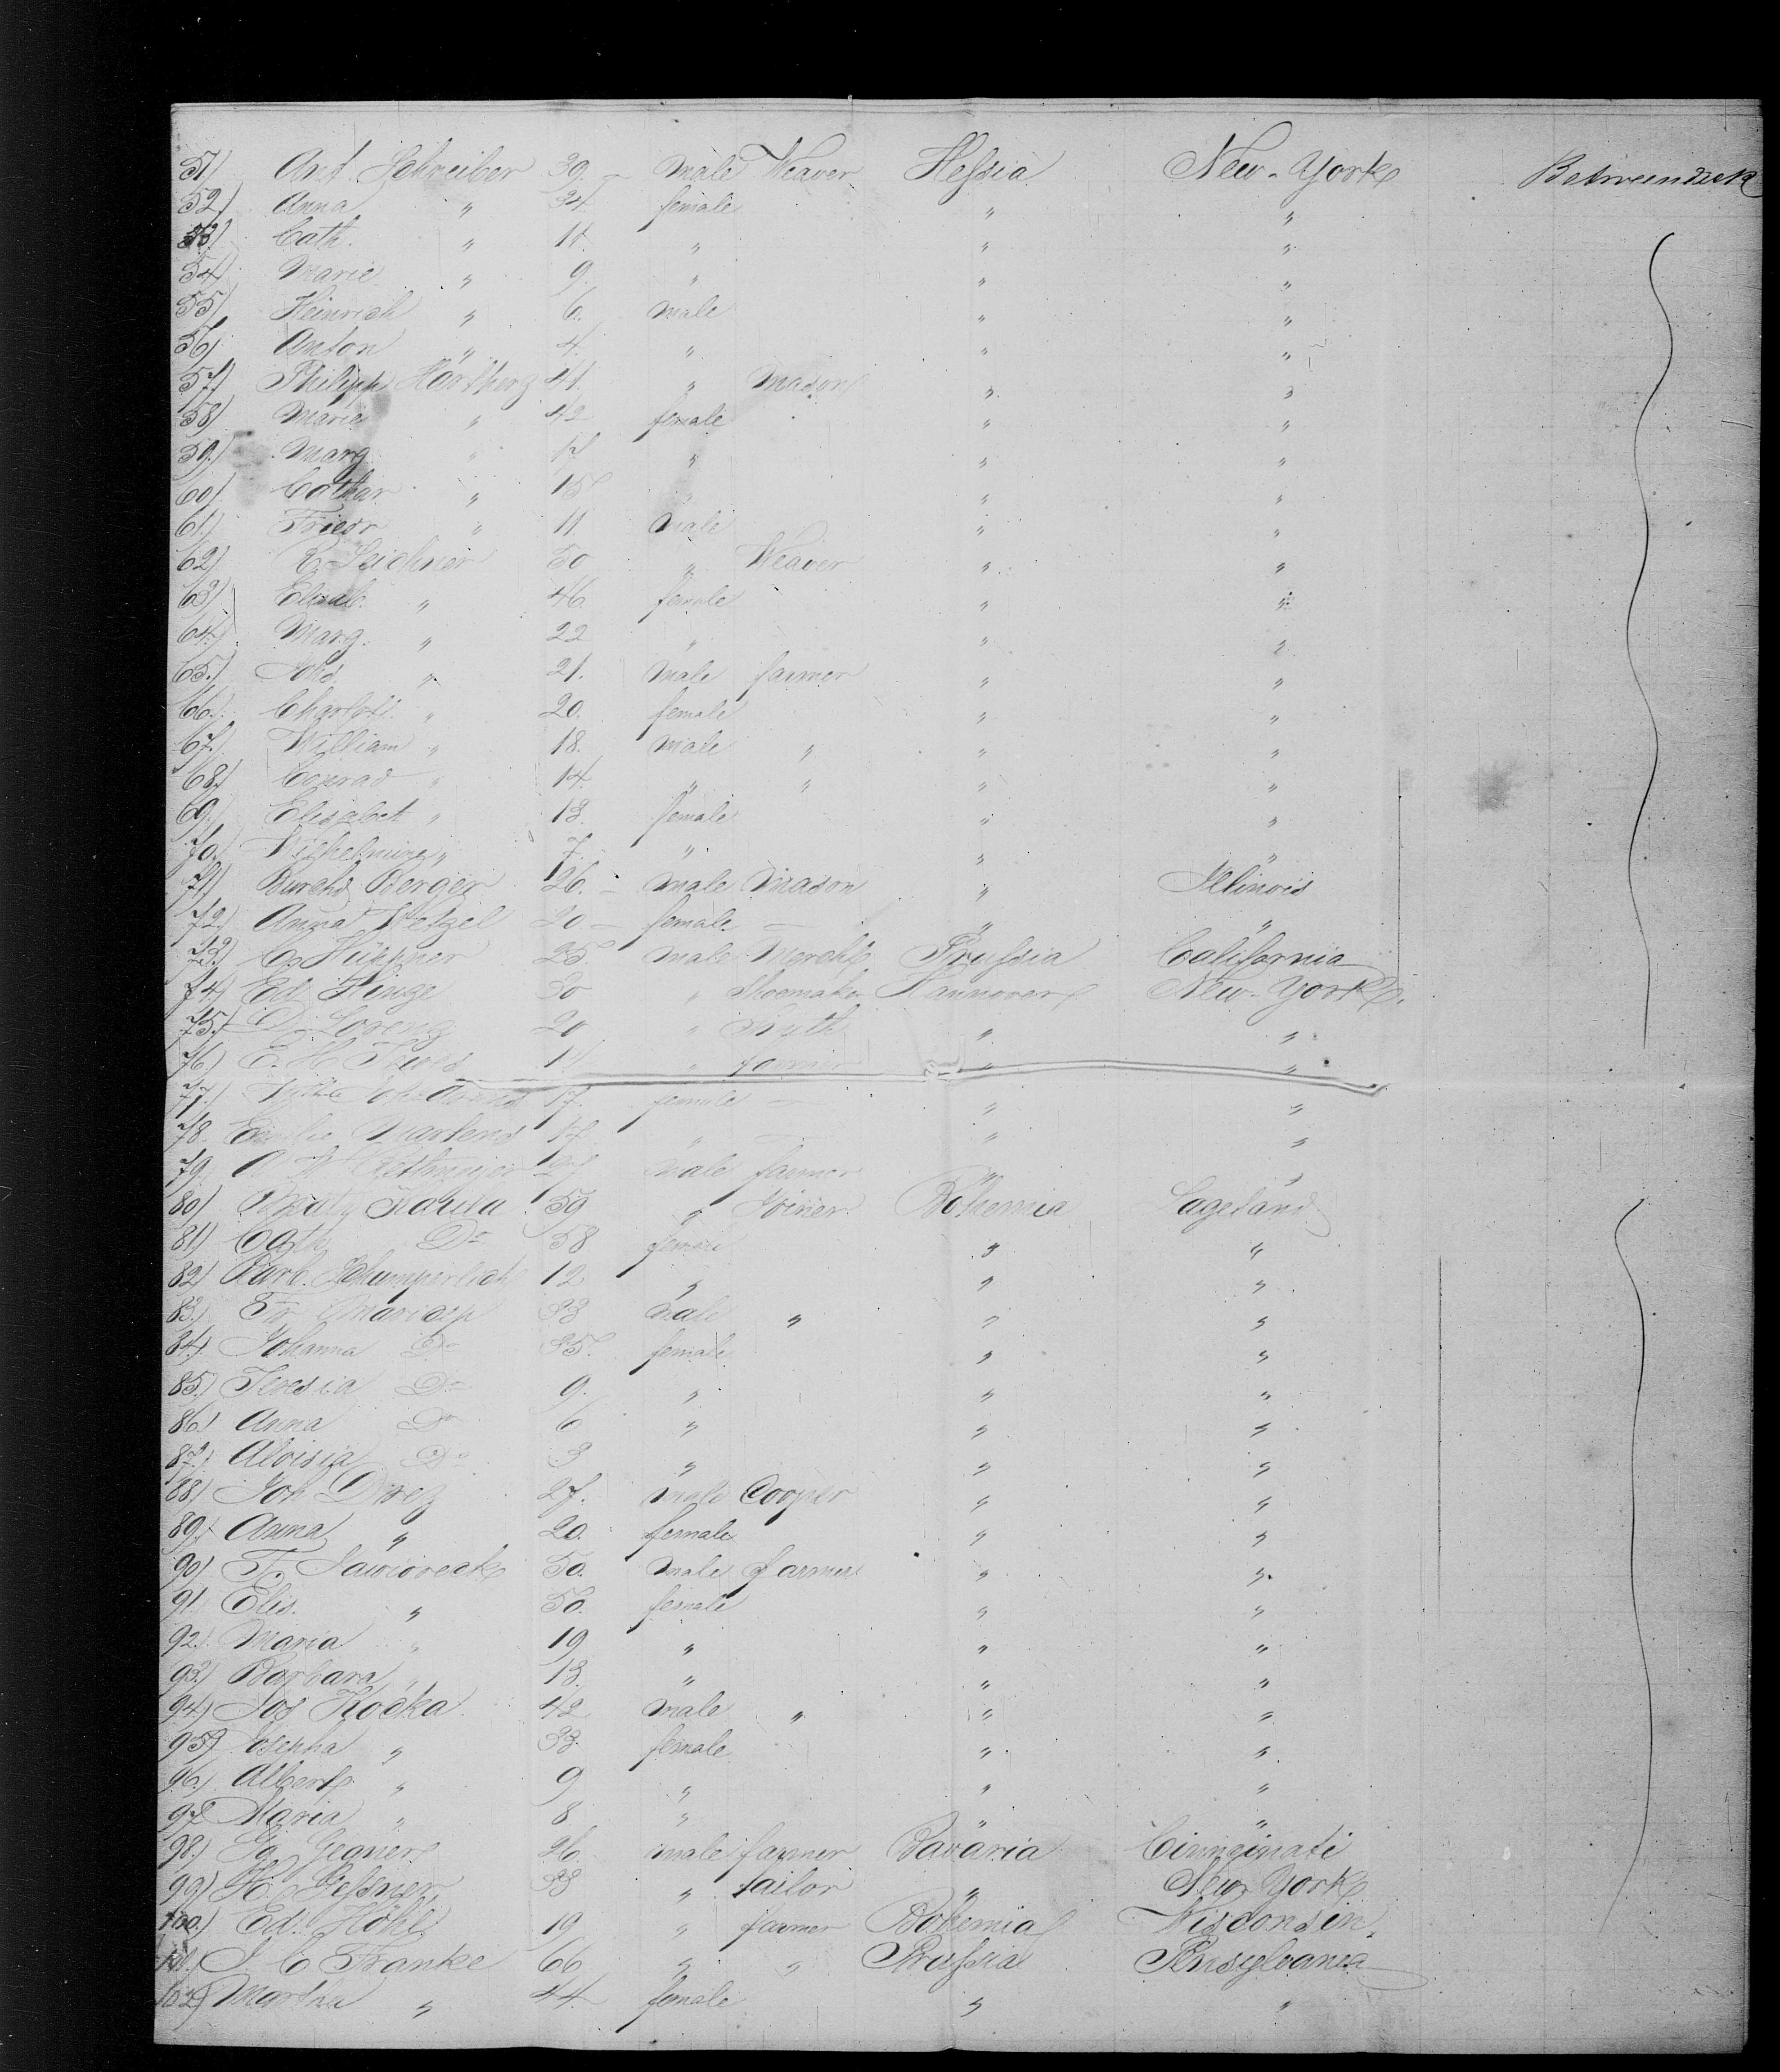 51) Ant Schreiber 39. – male Weaver Hessia New-York Betweendeck
52) Anna " 34 female " "
53) Cath. " 11. " " "
54) Marie " 9. " " "
55) Heinrich " 6. male " "
56) Anton " 4. " " "
57) Philipp 41. " Mason " "
58) Marie " 42 female " "
59.) Marg " " " "
60) Cathar " 15 " " "
61.) Friedr " 11 male " "
62) 50 " Weaver " "
63) Elisab. " 46. female " "
64.) Marg. " 22 " " "
65.) Johs. " 21. male farmer " "
66.) Charlott. " 20. female " "
67.) William " 18. male " " "
68.) Conrad " 14. " " " "
69.) Elisabet " 13. female " "
70. Wilhelmine " 7. " " "
71) Burchd Berger 26. – male Mason " Illinois
72.) Anna Wetzel 20 – female – " "
73.) C. Hüppner 25. male Mercht Prussia California
74.) Ed. Hinze 30 " Shoemaker Hannover New-York.
75.) D. Lorenz 20 " " "
76.) E. H. " farmer " "
77.) 17. female – " "
78. Martens 17 " " "
79. male farmer " "
80) 59 " Joiner Bohemia
81) Cath Do 58 female " "
82) Barb. 12 " " "
83.) Fr. 33 male " " "
84.) Johanna Do 35. female " "
85.) Teresia Do 9. " " "
86.) Anna Do 6 " " "
87.) Aloisia Do 3 " " "
88) Joh 27. male Cooper " "
89.) Anna " 20. female " "
90) F. 50. male farmer " "
91. Elis. " 50. female " "
92.) Maria " 19 " " "
93.) Barbara " 13. " " "
94.) Jos Kodka 42 male " " "
95) Josepha " 33. female " "
96.) Albert " 9 " " "
97 Maria " 8 " " "
98.) Gegner 26. male farmer Bavaria Cinncinati
99) H. Gessner 33 " tailor " New York
100.) Ed. Höhl 19 " farmer Bohemia Wisconsin.
101.) J. C Franke 66 " " Prussia Pensylvania
102) Martha " 44. female " "